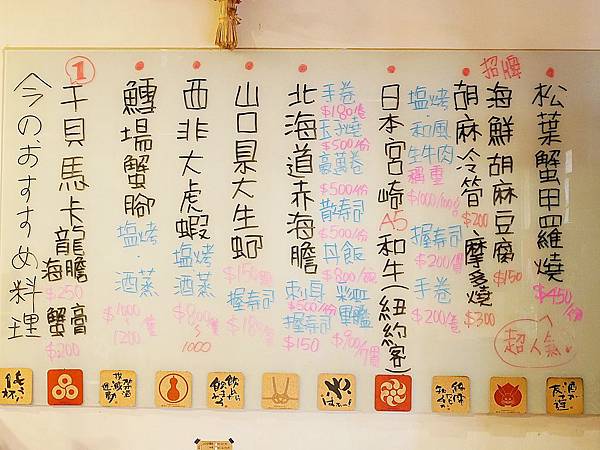 松葉蟹甲羅燒
$450/份
超人氣
招牌
海鮮胡麻豆腐
$150
胡麻冷筍
$200
摩多燒
$300
日本宮崎A5和牛(紐約客)
塩烤・和風
生牛肉
稱重
$1000/100g
握壽司
$200/個
手卷
$200/隻
北海道赤海膽
手卷
$180/隻
玉子燒
$500/份
豪萬卷
$500/份
散壽司
$500/份
丼飯
$800/碗
刺身
$500/份
握壽司
$150
山口県大生蚵
$150/個
握壽司
$180/個
西非大虎蝦
塩烤
酒蒸
$800/隻
~
1000
鱈場蟹腳
塩烤
・酒蒸
$1000/隻
~
1200
1
干貝馬卡龍
海膽
$250
蟹膏
$200
今のおすすめ料理